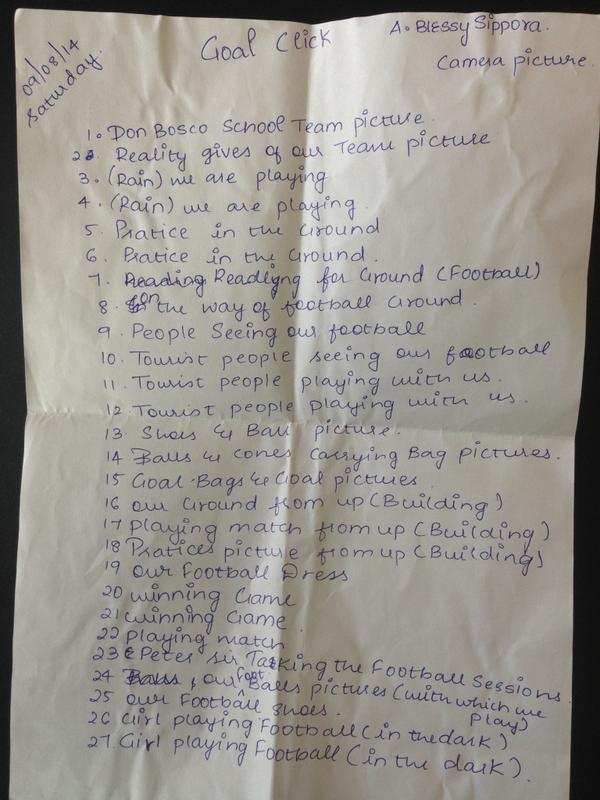 09/08/14
Saturday.
Goal Click
A. Blessy Sippora.
Camera picture.
1. Don Bosco School Team picture.
2. Reality gives of our Team picture
3. (Rain) we are playing
4. (Rain) we are playing.
5. Pratice in the Ground
6. Pratice in the Ground.
7. Readlyng for Ground (Football)
8. on the way of football Ground.
9. People Seeing our football
10. Tourist people seeing our football
11. Tourist people playing with us.
12. Tourist people playing with us.
13. Shoes & Ball picture.
14 Balls & cones Carrying Bag pictures.
15 Goal-Bags & Goal pictures
16 our Ground from up (Building)
17 playing match from up (Building)
18 Pratices picture from up (Building)
19 our Football Dress
20 winning Game
21 winning Game.
22 playing match
23 Peter sir Taking the Football Sessions.
24 our foot Balls pictures (with which we play)
25 our Football shoes.
26 Girl playing Football (in the dark)
27. Girl playing Football (in the dark).